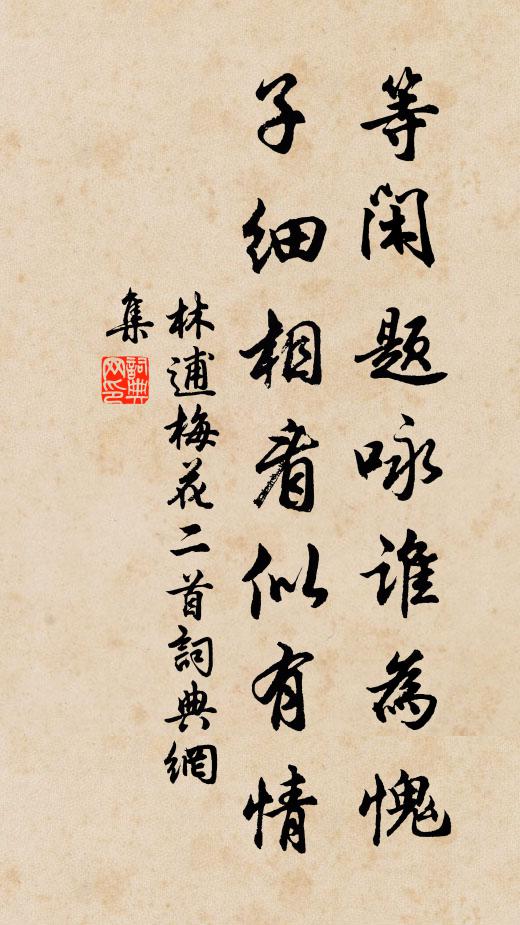 等闲题咏谁為愧
子细相看似有情
林逋梅花二首詞典網
集
詞典网印